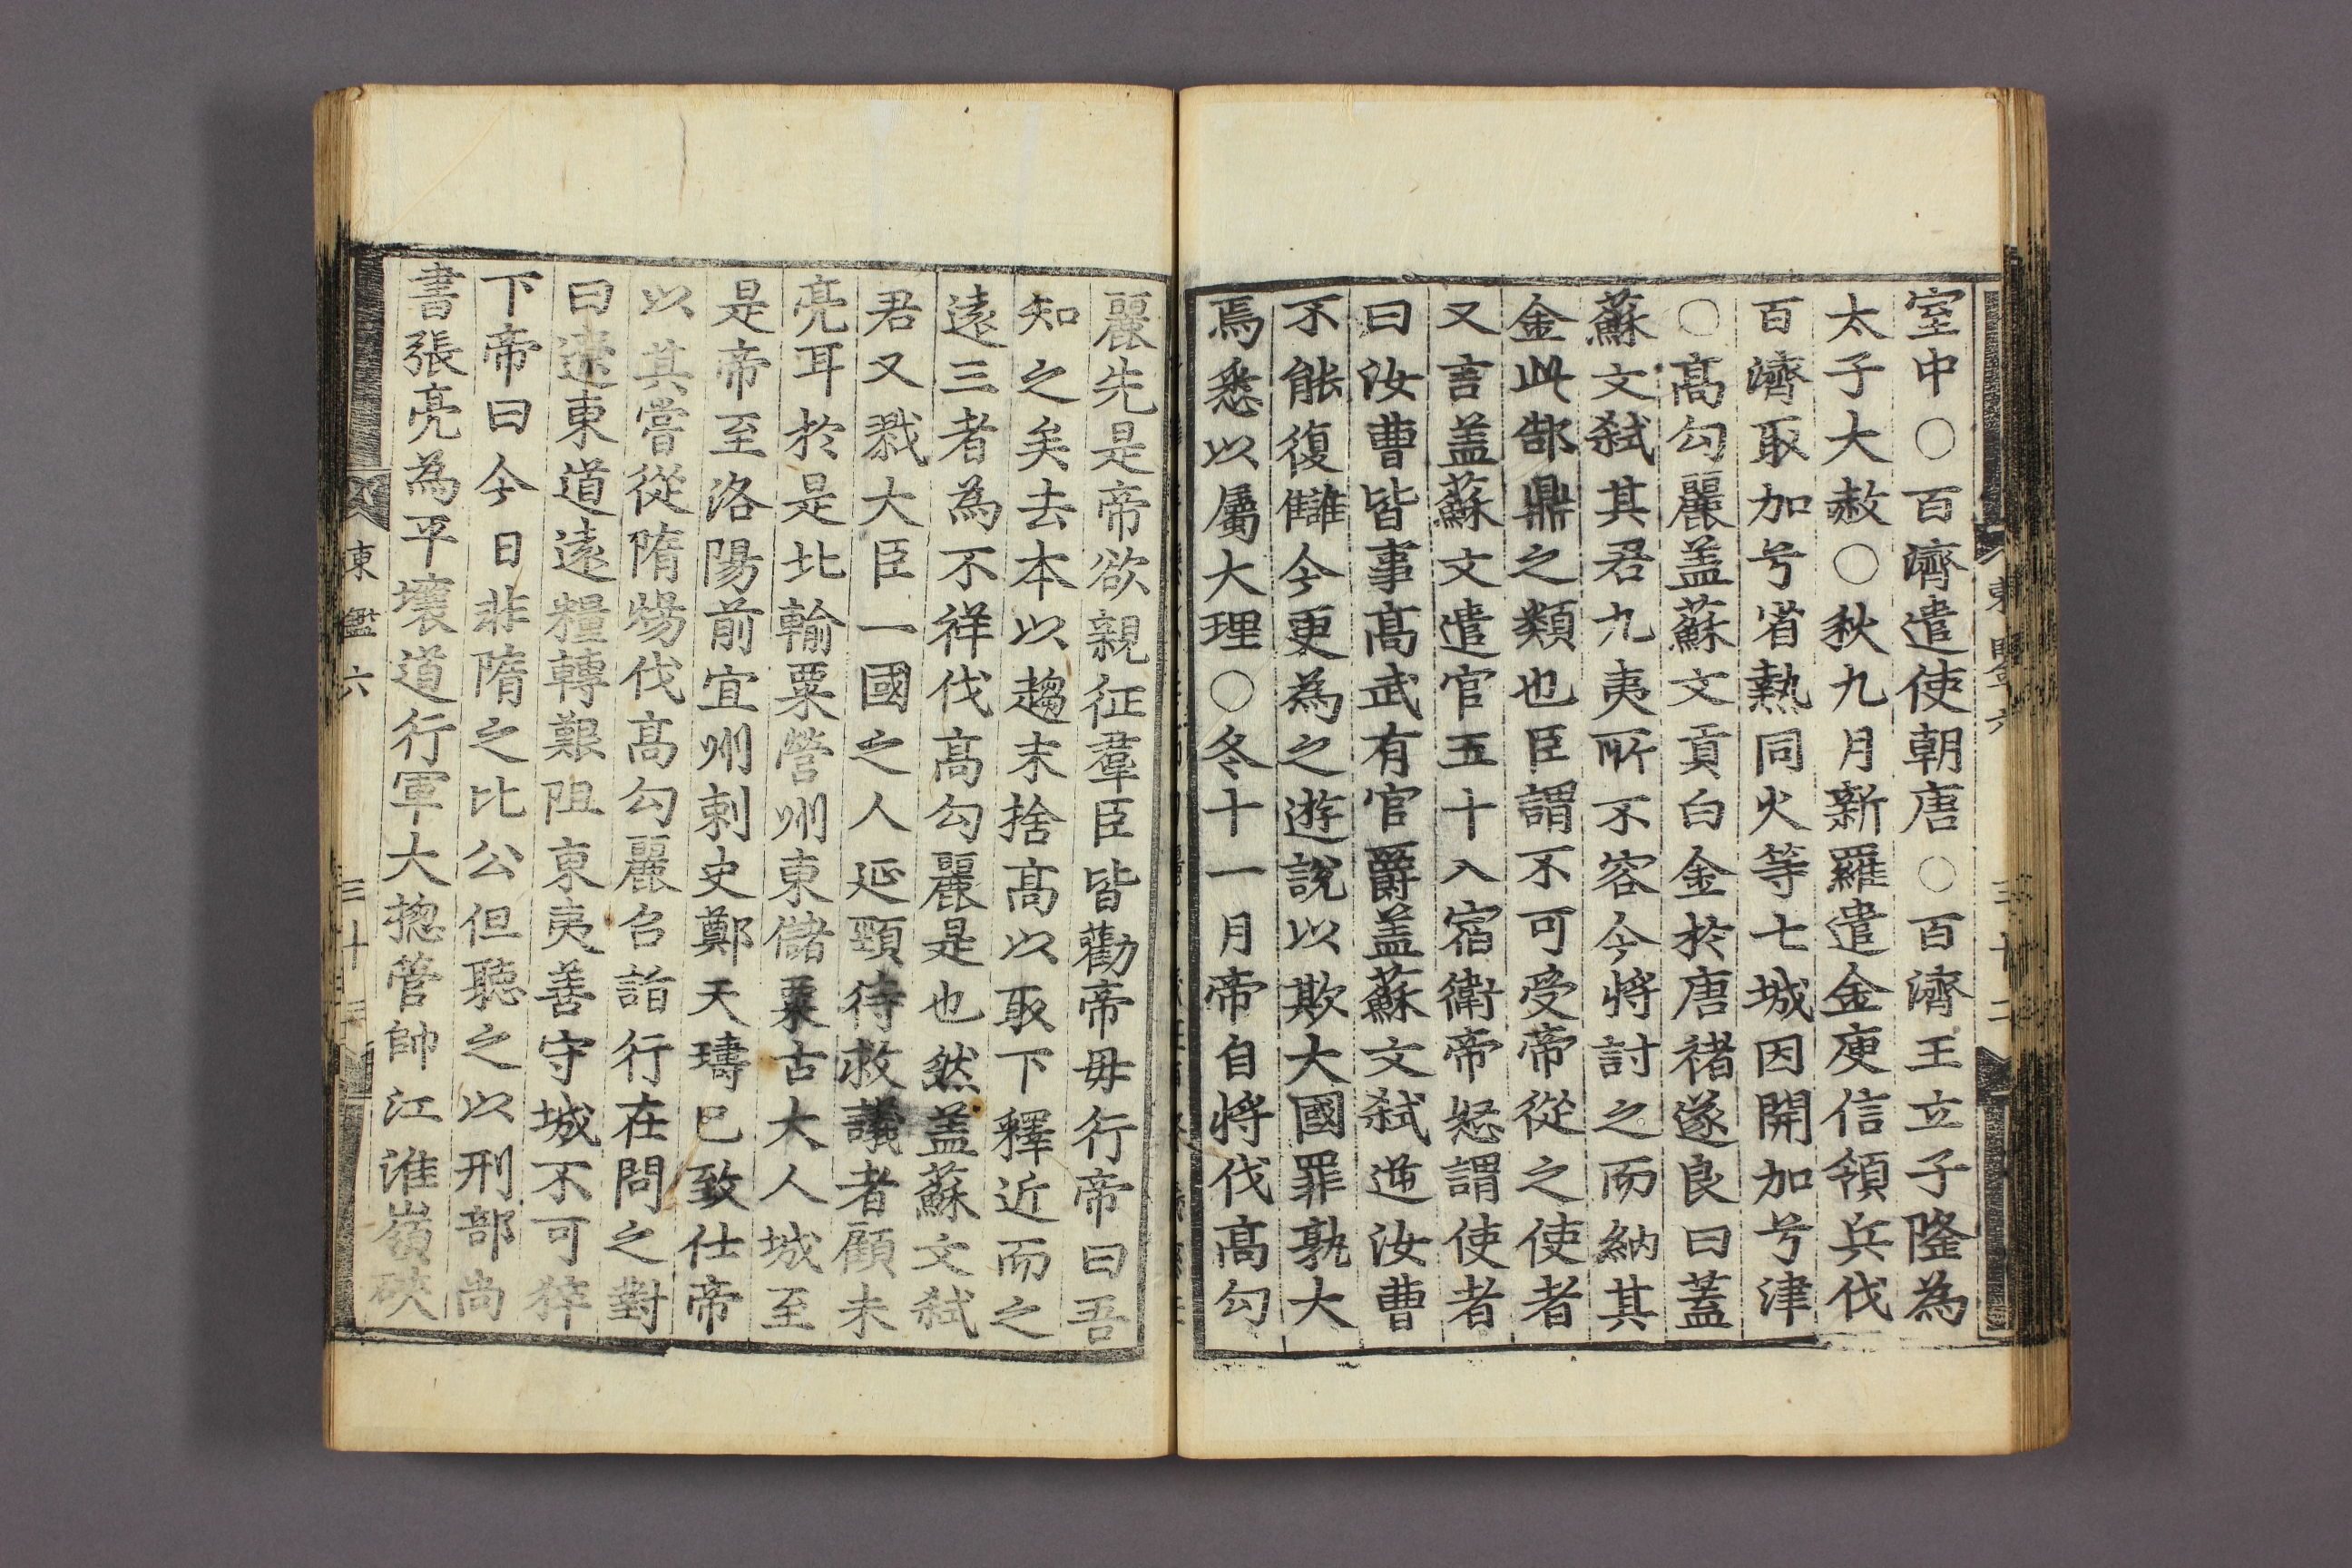 室中○百濟遣使朝唐○百濟王立子隆為
太子大赦○秋九月新羅遣金庾信領兵伐
百濟取加兮省熱同火等七城因開加兮津
○髙勾麗盖蘇文貢白金於唐禇遂良曰蓋
蘇文弑其君九夷所不容今將討之而納其
金此郜鼎之類也臣謂不可受帝從之使者
又言盖蘇文遣官五十入宿衛帝怒謂使者
曰汝曹皆事髙武有官爵盖蘇文弑逆汝曹
不能復讎今更為之遊說以欺大國罪孰大
焉悉以屬大理○冬十一月帝自將伐髙勾
東鑑六
三十二
麗先是帝欲親征羣臣皆勸帝毋行帝曰吾
知之矣去本以趨末捨髙以取下釋近而之
遠三者為不祥伐髙勾麗是也然盖蘇文弑
君又戮大臣一國之人延頸待救議者顧未
亮耳於是北輸粟營州東儲粟古大人城至
是帝至洛陽前宜州刺史鄭天璹已致仕帝
以其嘗從隋煬伐髙勾麗召詣行在問之對
曰遼東道遠糧轉艱阻東夷善守城不可猝
下帝曰今日非隋之比公但聽之以刑部尚
書張亮為平壤道行軍大捴管帥江淮嶺硤
東鑑六
三十三